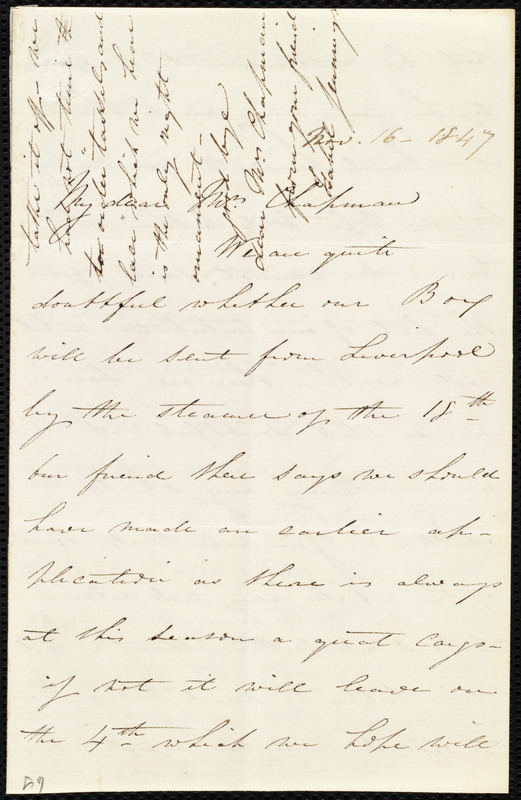 Nov. 16 - 1847
My dear Mrs Chapman
We are quite
doubtful whether our Box
will be sent from Liverpool
by the steamer of the 18th
our friend there says we should
have made an earlier ap-
plication as there is always
at this season a great cargo -
if not it will leave on
the 4th which we hope will
take it off - we
have not time to
order tassels and
lace which we hear
is the only right
ornament -
good bye
dear Mrs Chapman
from your friend
Isabel Jennings